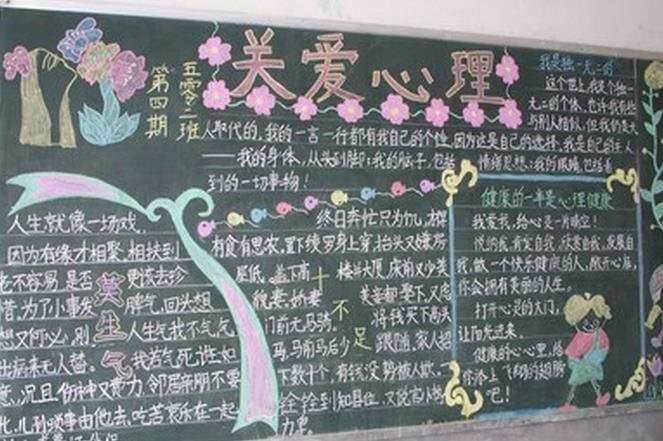 关爱心理
五零二班
第四期
我是独一无二的
这个世上我是个独一
无二的个体,也许我有些
与别人相似,但我仍是无
人取代的。我的一言一行都有我自己的个性,因为这是自己的选择。我是自己的主人
——我的身体,从头到脚;我的脑子,包括情绪思想;我的眼睛,包括看
到的一切事物!
莫生气
人生就像一场戏,
因为有缘才相聚。相扶到
老不容易,是否更该去珍
惜。为了小事发脾气,回头想
想又何必。别人生气我不气,气
出病来无人替。我若气死谁如
意,况且伤神又费力。邻居亲朋不要
比,儿孙琐事由他去。吃苦享乐在一起
十不足
终日奔忙只为饥,才得
有食又思衣。置下绫罗身上穿,抬头又嫌房
屋低。盖下高楼并大厦,床前又少美
貌妻。娇妻美妾都娶下,又虑
门前无马骑。将钱买下高头
马,马前马后少跟随。家人招
下数十个,有钱没势被人欺。一
铨铨到知县位,又说官小
健康的一半是心理健康
我爱我,给心灵一片晴空!
悦纳我,肯定自我,欣赏自我,发展自
我,做一个快乐健康的人,敞开心扉,
你会拥有美丽的人生。
打开心灵的大门,
让阳光进来。
健康的心心里,给
你添上飞翔的翅膀
吧!